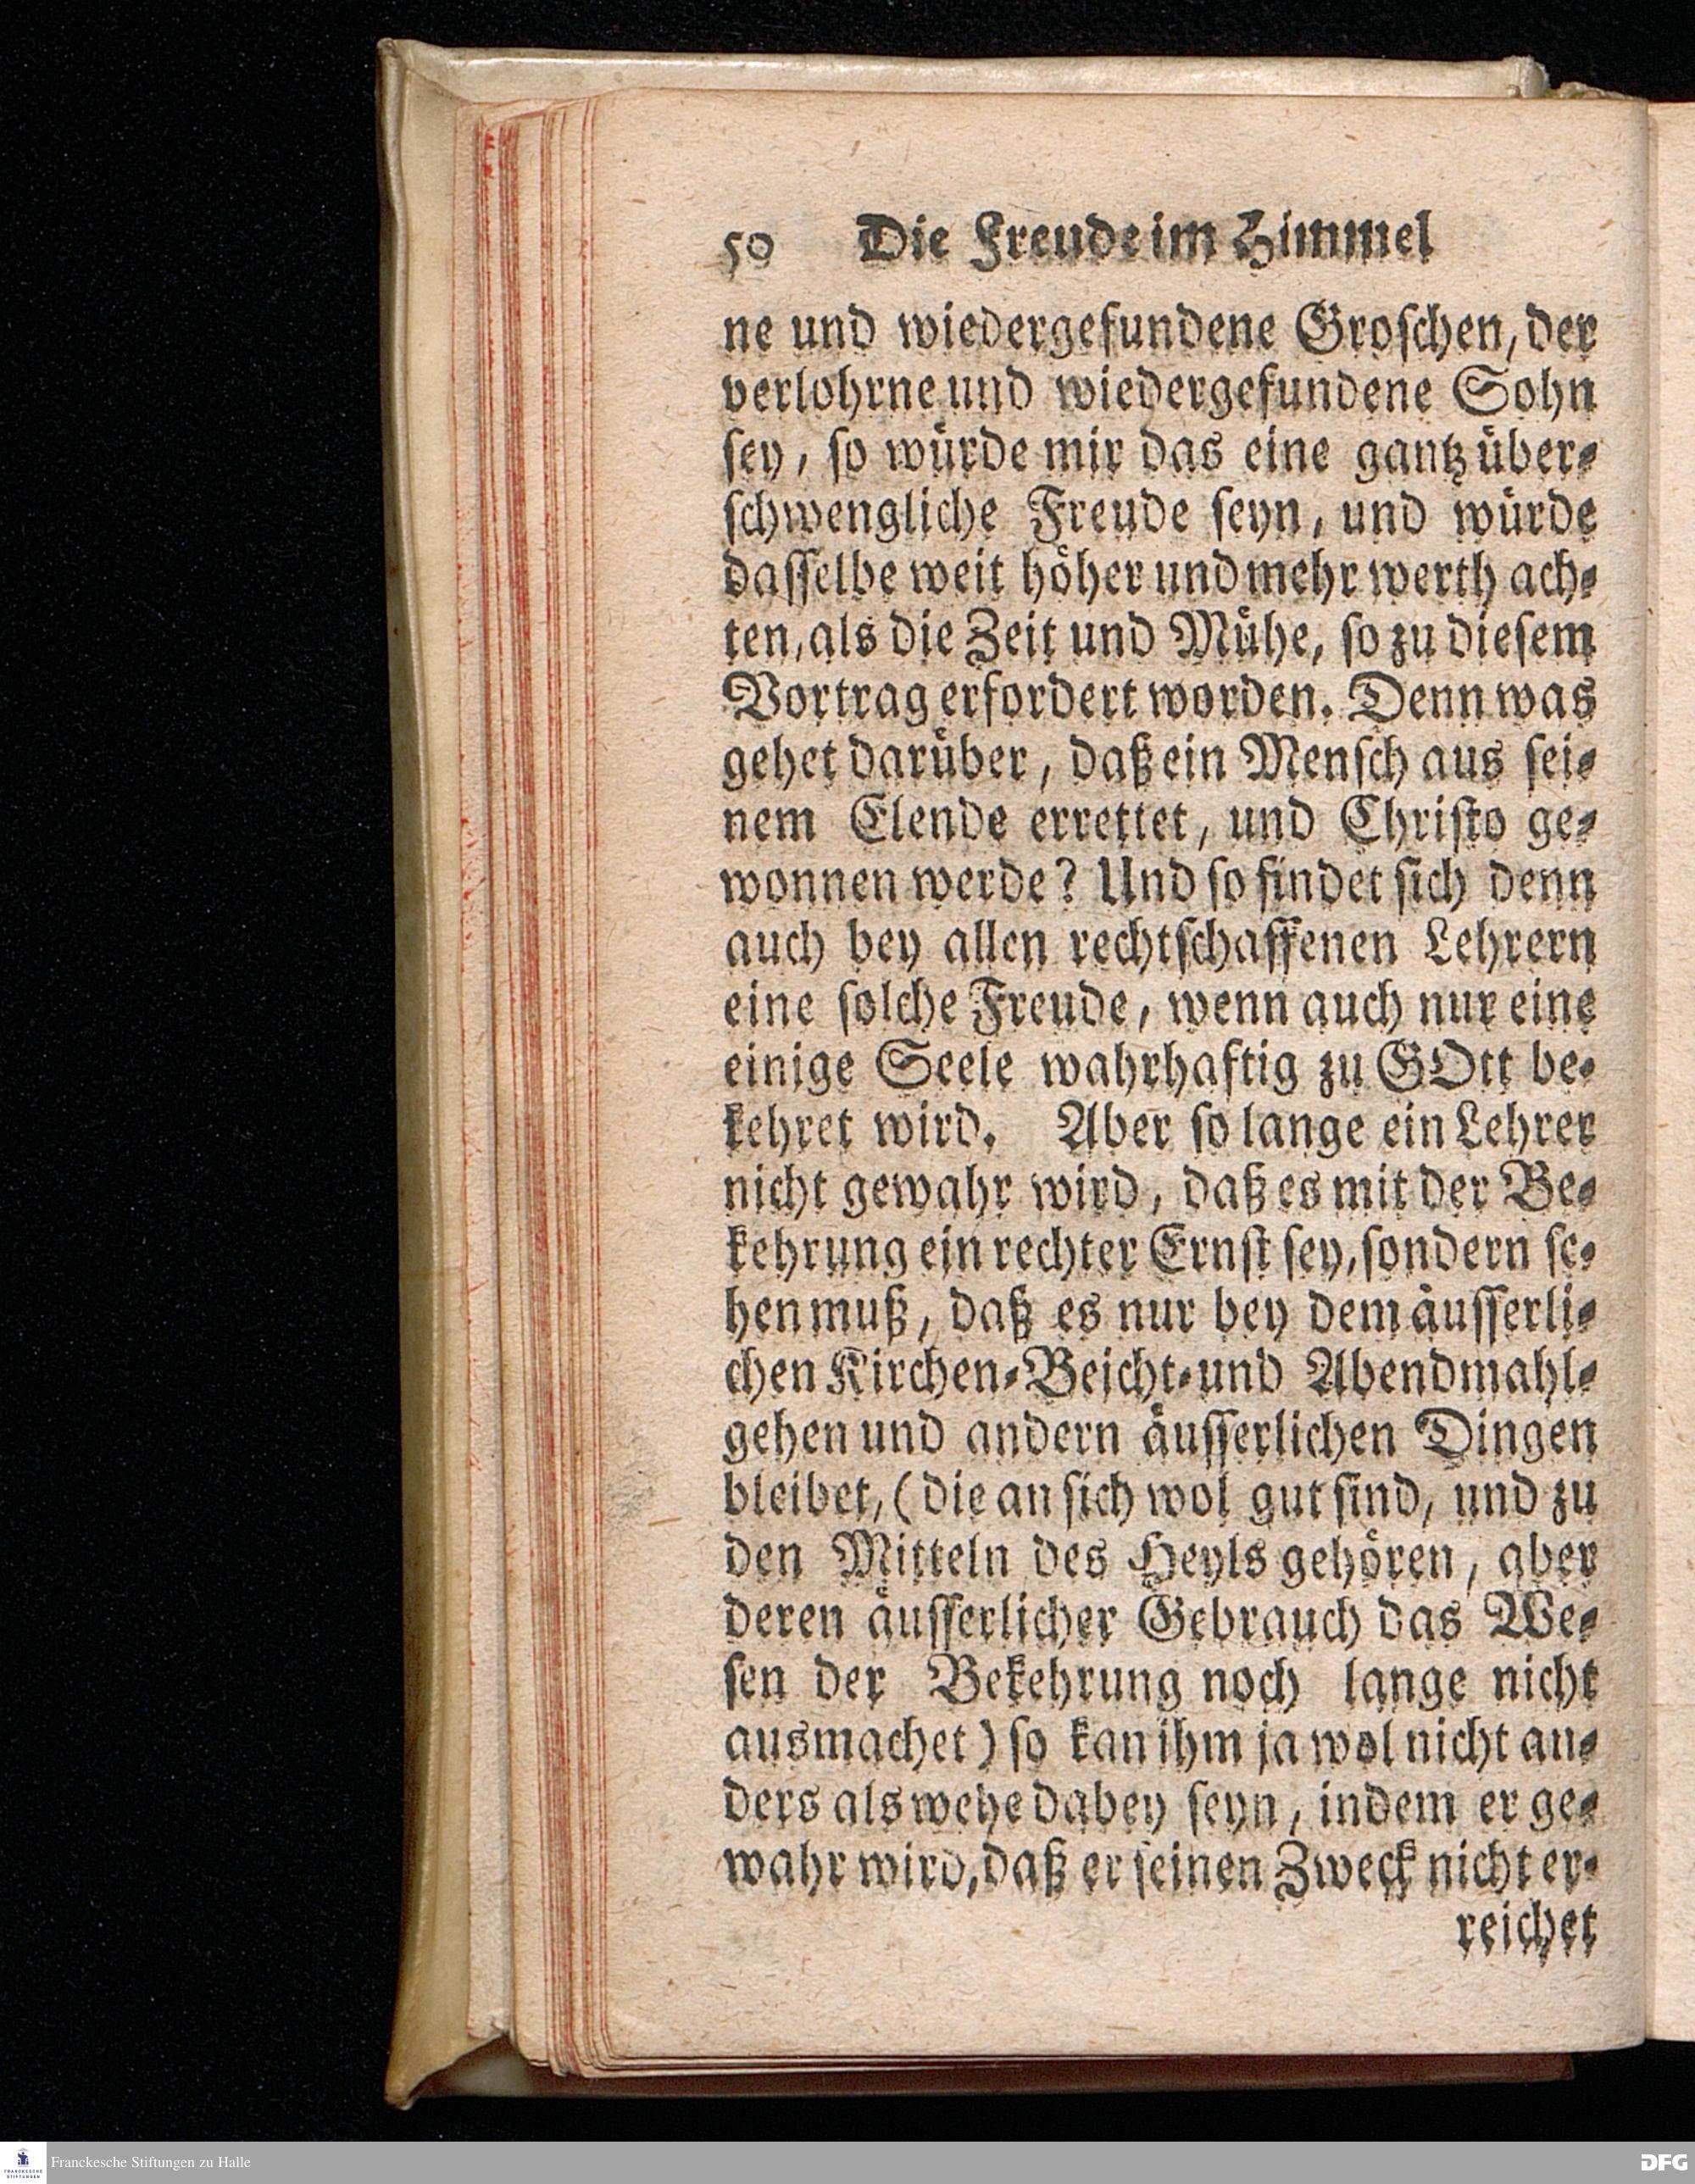 50 Die Freude im Himmel
ne und wiedergefundene Groschen, der
verlohrne und wiedergefundene Sohn
sey, so würde mir das eine gantz über-
schwengliche Freude seyn, und würde
dasselbe weit höher und mehr werth ach-
ten, als die Zeit und Mühe, so zu diesem
Vortrag erfordert worden. Denn was
gehet darüber, daß ein Mensch aus sei-
nem Elende errettet, und Christo ge-
wonnen werde? Und so findet sich denn
auch bey allen rechtschaffenen Lehrern
eine solche Freude, wenn auch nur eine
einige Seele wahrhaftig zu GOtt be-
kehret wird. Aber so lange ein Lehrer
nicht gewahr wird, daß es mit der Be-
kehrung ein rechter Ernst sey, sondern se-
hen muß, daß es nur bey dem äusserli-
chen Kirchen-Beicht-und Abendmahl-
gehen und andern äusserlichen Dingen
bleibet, (die an sich wol gut sind, und zu
den Mitteln des Heyls gehören, aber
deren äusserlicher Gebrauch das We-
sen der Bekehrung noch lange nicht
ausmachet) so kan ihm ja wol nicht an-
ders als wehe dabey seyn, indem er ge-
wahr wird, daß er seinen Zweck nicht er-
reichet
FRANCKESCHE
STIFTUNGEN
Franckesche Stiftungen zu Halle
DFG